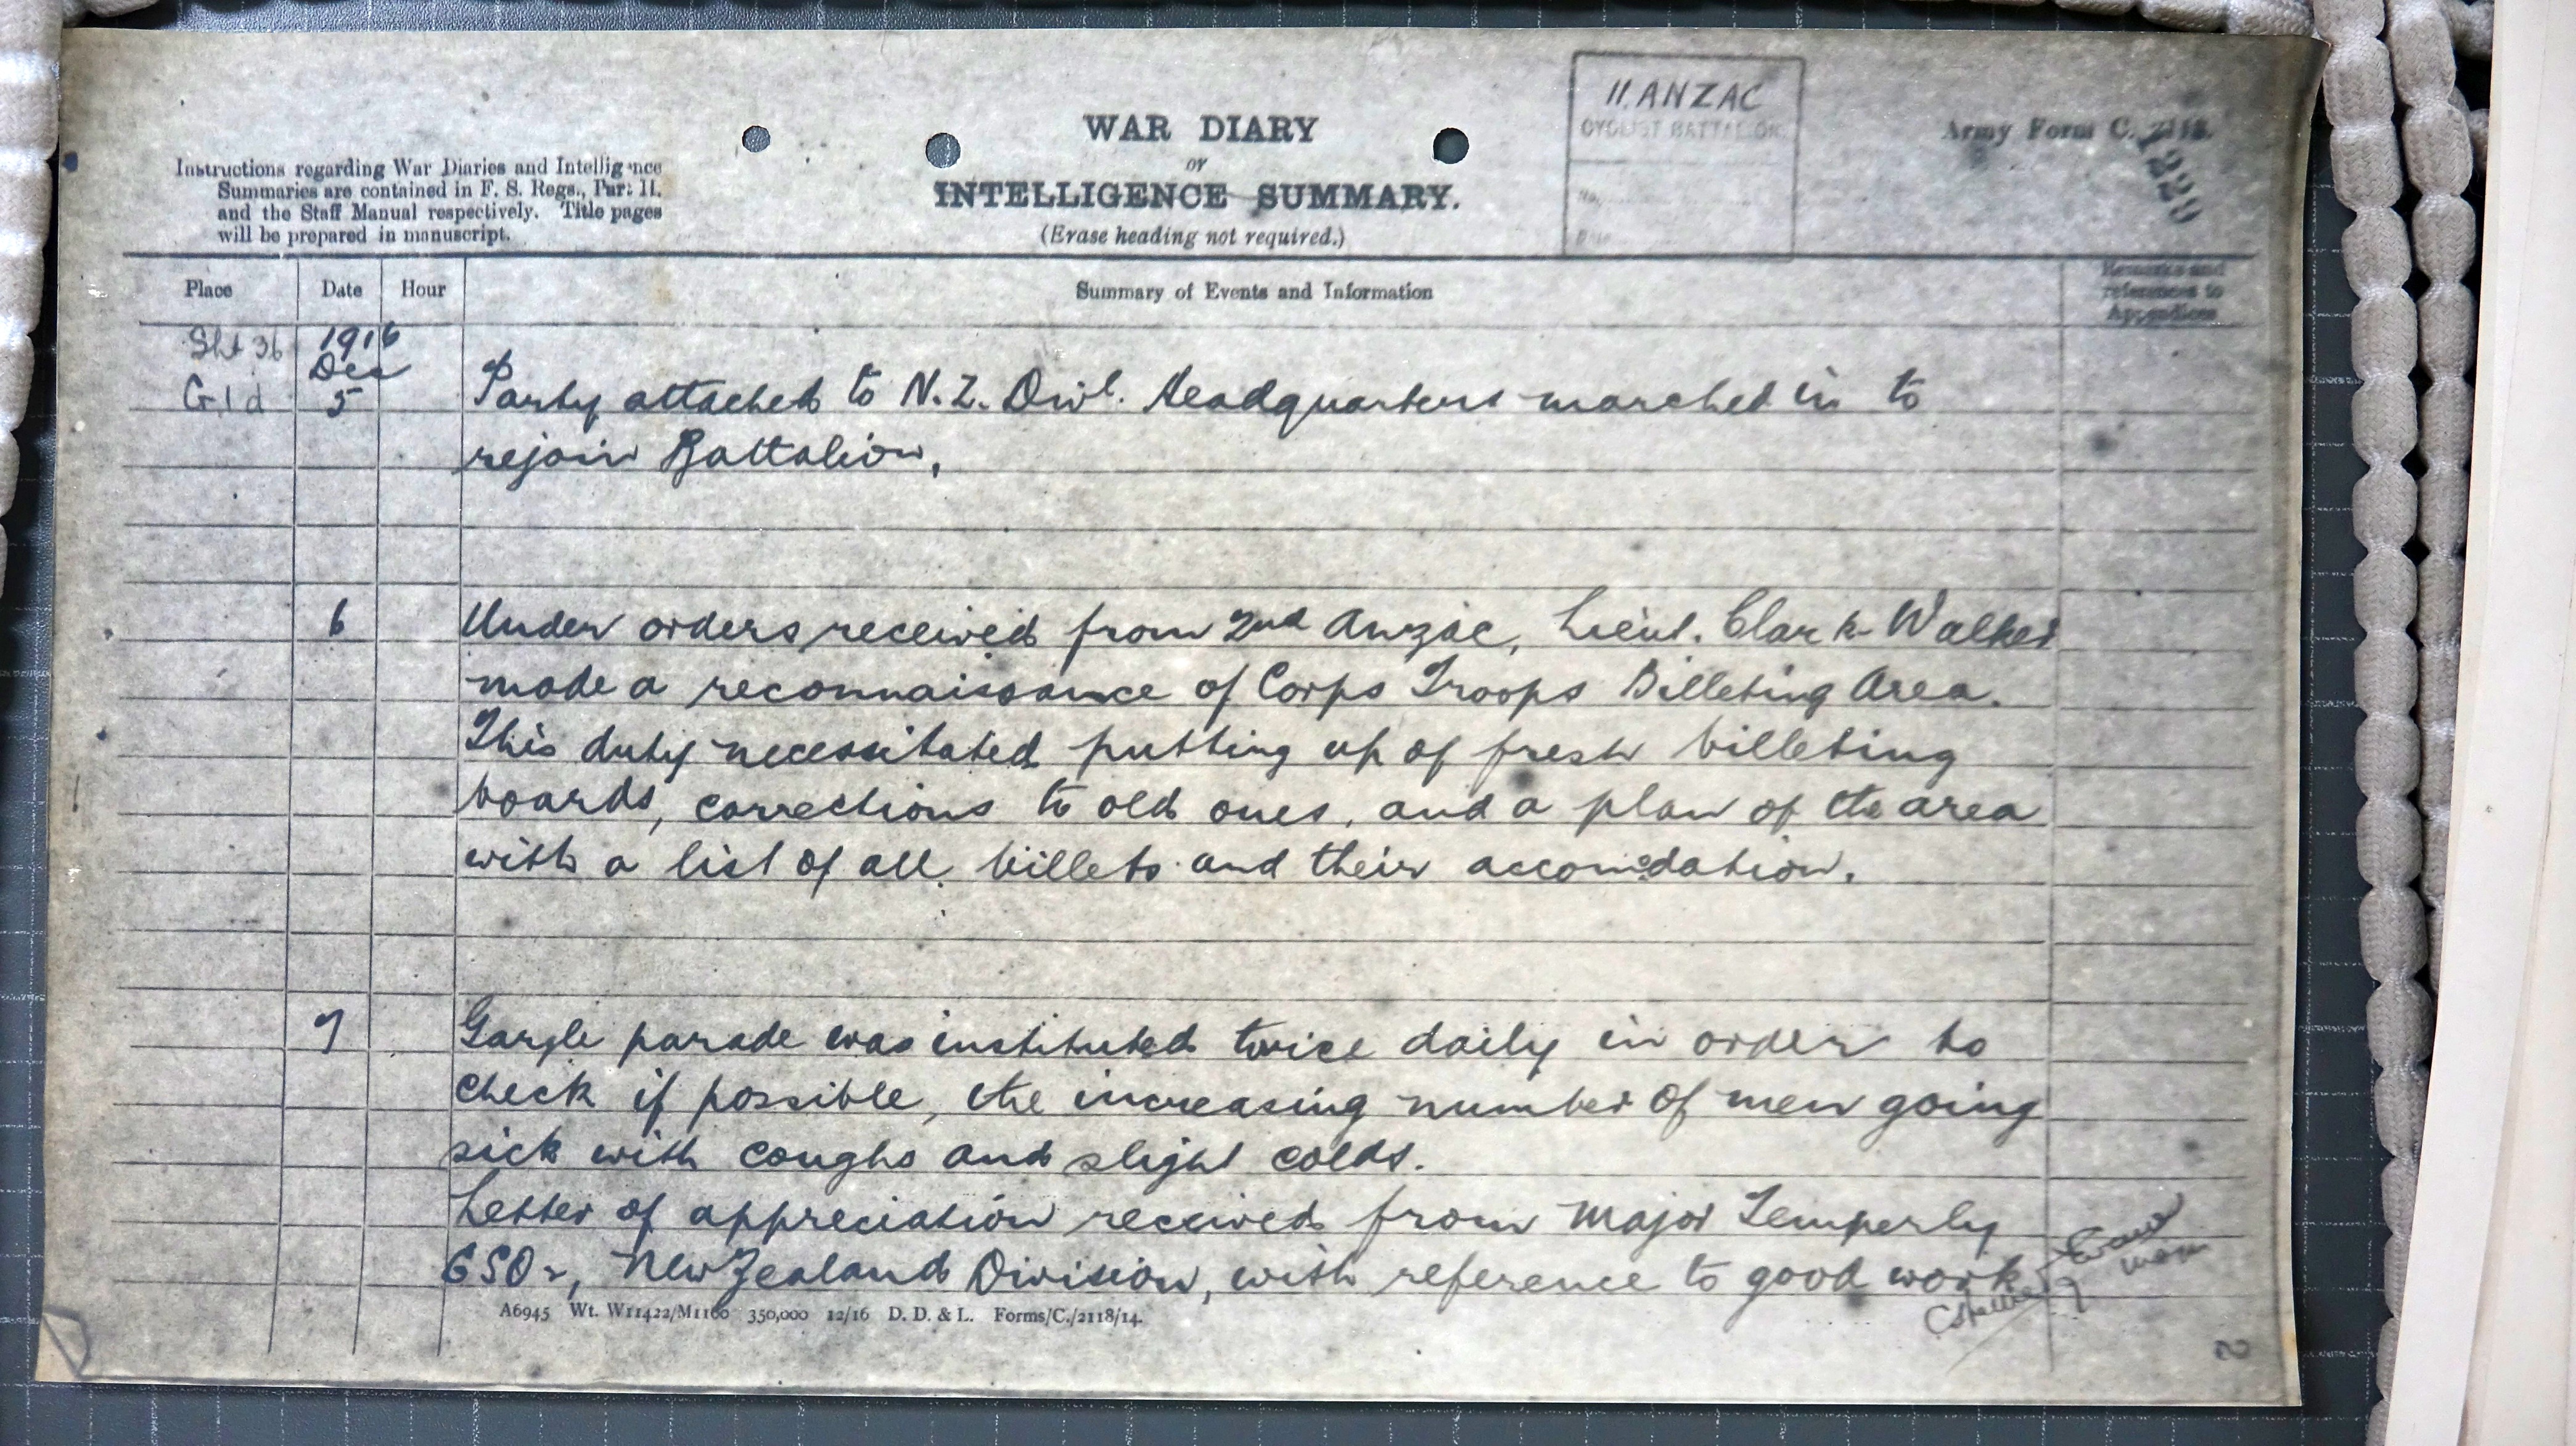 II. ANZAC
CYCLIST BATTALION
No.
Date
WAR DIARY
or
INTELLIGENCE SUMMARY.
(Erase heading not required.)
Army Form C. 2118.
1229
Instructions regarding War Diaries and Intelligence
Summaries are contained in F. S. Regs., Part II.
and the Staff Manual respectively. Title pages
will be prepared in manuscript.
Place Date Hour Summary of Events and Information Remarks and
references to
Appendices
Sht 36 1916
Dec
G.1.d 5 Party attached to N.Z. Divl. Headquarters marched in to
rejoin Battalion,
6 Under orders received from 2nd Anzac, Lieut. Clark-Walker
made a reconnaissance of Corps Troops Billeting Area.
This duty necessitated putting up of fresh billeting
boards, corrections to old ones, and a plan of the area
with a list of all billets and their accomodation.
7 Gargle parade was instituted twice daily in order to
check if possible, the increasing number of men going
sick with coughs and slight colds.
Letter of appreciation received from Major Temperly
GSO2, New Zealand Division, with reference to good work
A6945 Wt. W11422/M1160 350,000 12/16 D. D. & L. Forms/C./2118/14.
2